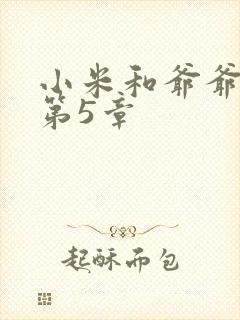 小米和爷爷
第5章
起酥而包